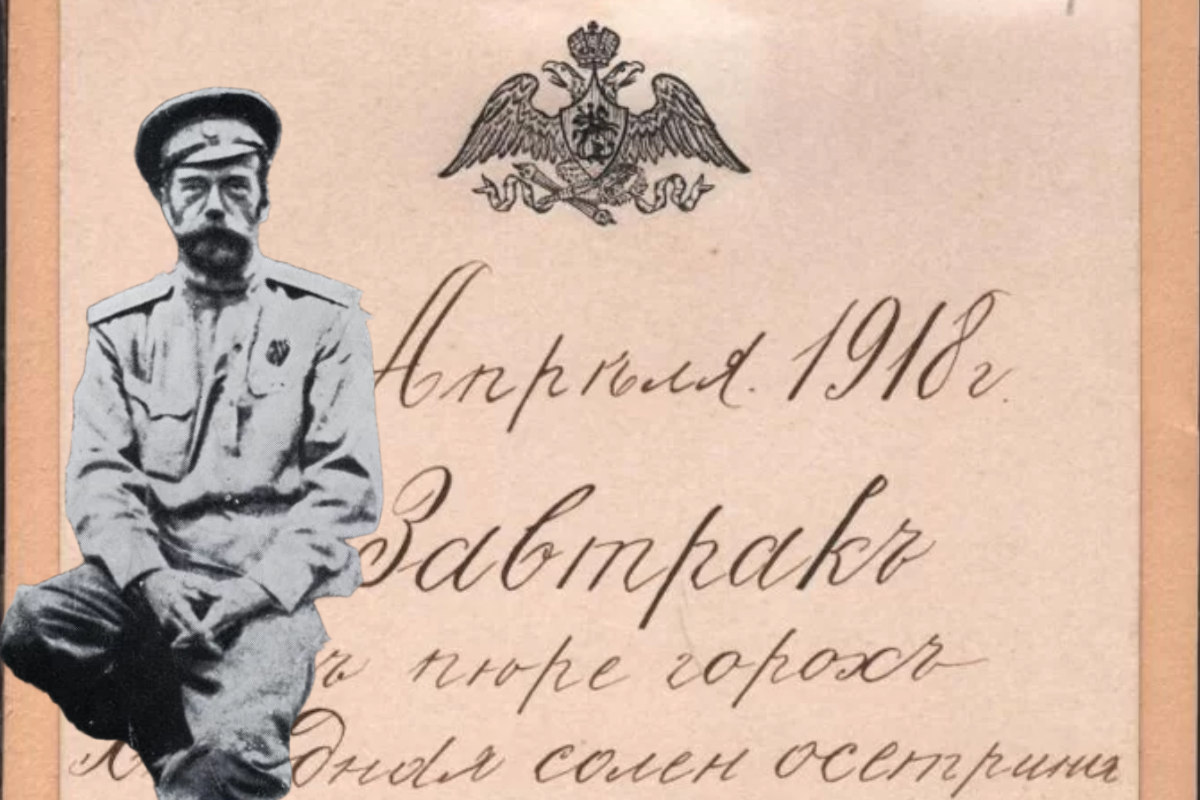 Апрѣля. 1918 г.
Завтракъ
ъ пюре горохъ
дная солен осетрина